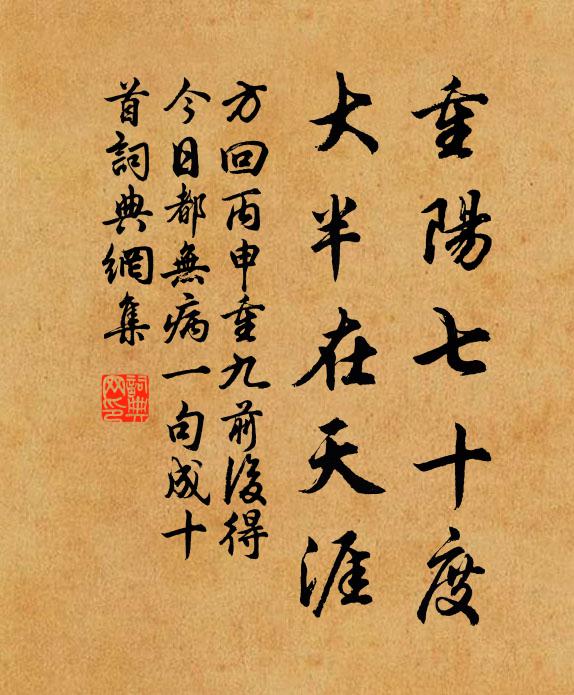 重陽七十度
大半在天涯
方回丙申重九前後得
今日都無病一句成十
首詞典網集
詞典網印